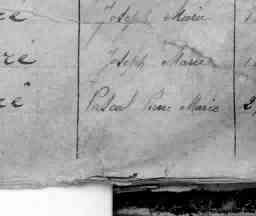 Joseph Marie
ré Joseph Marie
é Pascal Pierre Marie 2